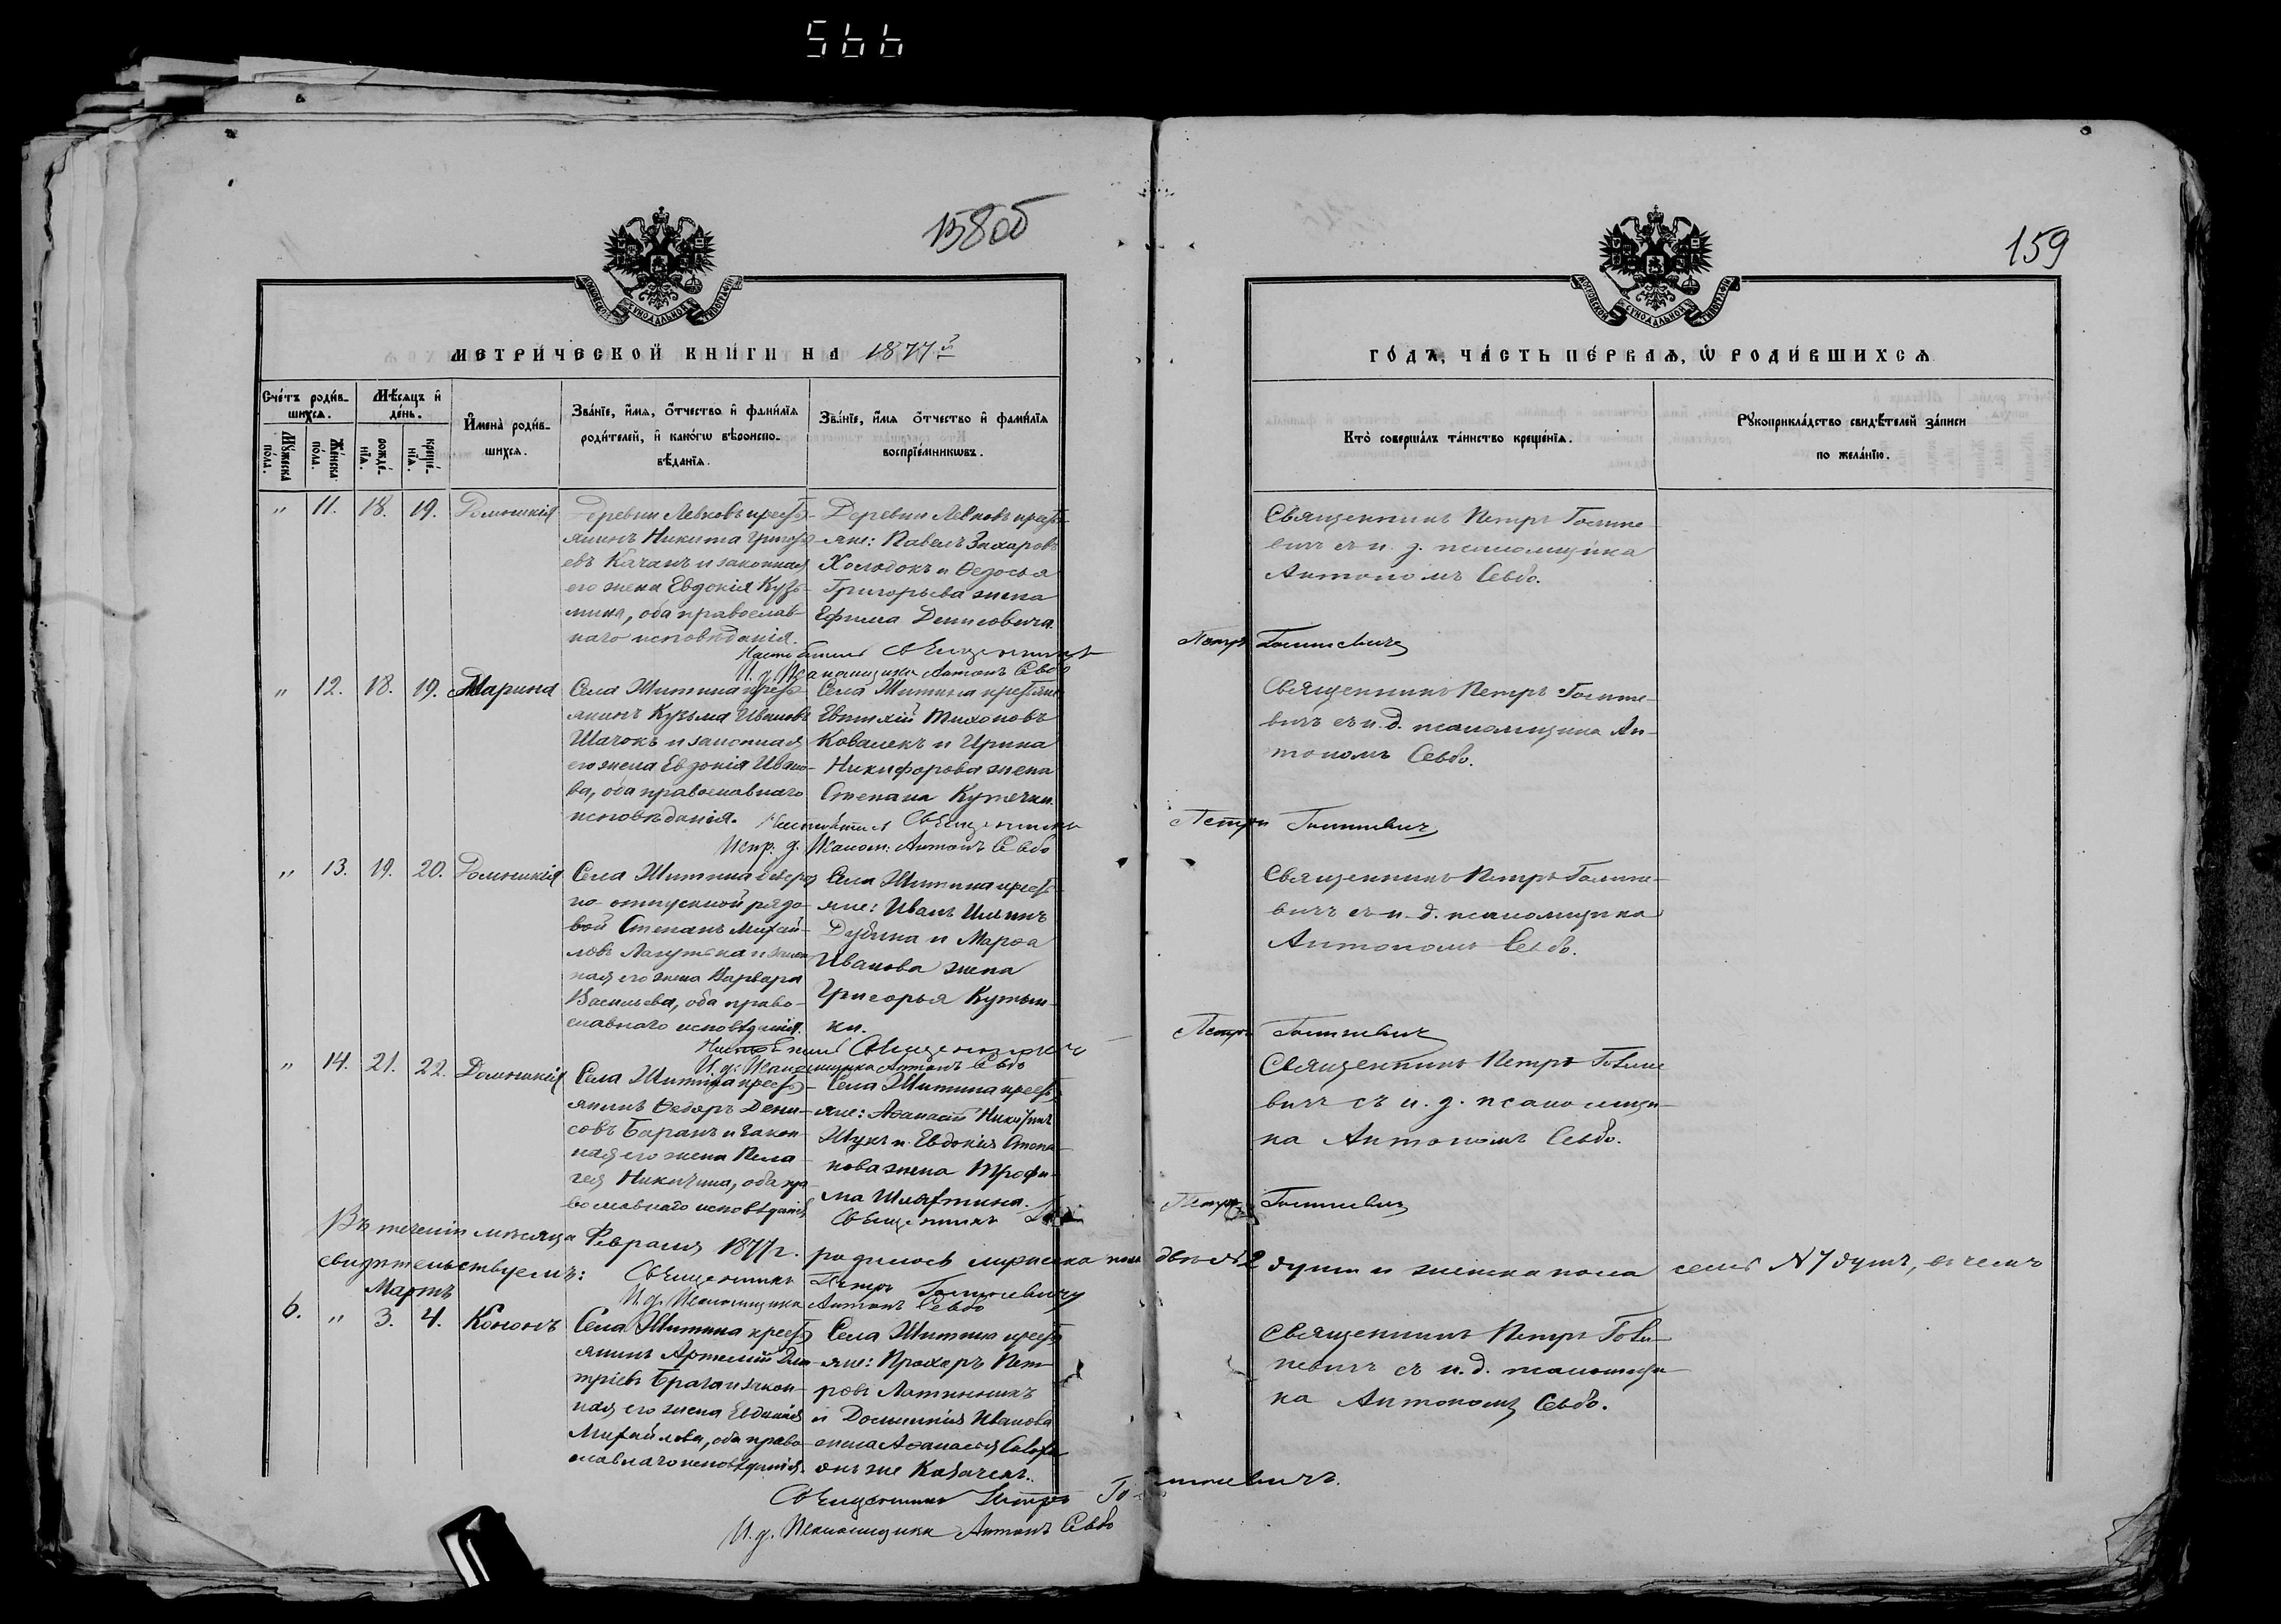 566
158об
159
МЕТРИ́ЧЕСКОЙ КНИ́ГИ НА 1877 й
ГО́ДЪ, ЧА́СТЬ ПЕ́РВАѦ, Ѽ РОДИ́ВШИХСѦ
МОСКОВСКОЙ СѴНОДАЛЬНОЙ ТИПОГРАФІИ
МОСКОВСКОЙ СѴНОДАЛЬНОЙ ТИПОГРАФІИ
Сче́тъ роди́в-
шихся.
Мꙋ́жеска
по́ла.
Же́нска
по́ла.
Мѣ́сяцъ и҆
де́нь.
рожде́-
нїѧ.
креще́-
нїѧ.
И҆мена̀ роди́в-
шихся.
Зва́нїе, и҆́мѧ, ѻ҆́тчество и҆ фами́лїѧ
роди́телей, и҆ како́гѡ вѣроиспо-
вѣ́данїѧ.
Зва́нїе, и҆́мѧ ѻ҆́тчество и҆ фами́лїѧ
воспрїе́мникѡвъ.
Кто̀ соверша́лъ та́инство креще́нїѧ.
Рꙋкоприкла́дство свидѣ́телей за́писи
по жела́нїю.
" 11. 18. 19. Домникія
Деревни Левковъ кресть-
янинъ Никита Григорь-
евъ Качанъ и законная
его жена Евдокія Кузь-
мина, оба православ-
наго исповѣданія.
Деревни Левковъ кресть-
яне: Павелъ Захаровъ
Холодокъ и Ѳедосья
Григорьева жена
Ефима Денисовича.
Священникъ Петръ
вичъ съ и. д. псаломщика
Антономъ Севбо.
Священникъ Петръ
И. д. Псаломщика Антонъ Севбо
" 12. 18. 19. Марина
Села Житина кресть-
янинъ Кузьма Ивановъ
Шачокъ и законная
его жена Евдокія Ивано-
ва, оба православнаго
исповѣданія.
Села Житина крестьяне
Евтихій Тихоновъ
Ковалекъ и Ирина
Никифорова жена
Степана
Священникъ Петръ
вичъ съ и. д. псаломщика Ан-
тономъ Севбо.
Священникъ Петръ
Испр. д. Псалом: Антонъ Севбо
" 13. 19. 20. Домникія
Села Житина
но отпускной рядо-
вой Степанъ Михай-
ловъ и закон-
ная его жена Варвара
Васильева, оба право-
славнаго исповѣданія.
Села Житина кресть-
яне: Иванъ Ильинъ
Дубина и Марѳа
Иванова жена
Григорья
ки.
Священникъ Петръ
вичъ съ и. д. псаломщика
Антономъ Севбо.
Священникъ Петръ
И. д. Псаломщика Антонъ Севбо
" 14. 21. 22. Домникія
Села Житина кресть-
янинъ Ѳедоръ Дени-
совъ Баранъ и закон-
ная его жена Пела-
гея Никитина, оба пра-
вославнаго исповѣданія
Села Житина кресть-
яне: Аѳанасій Никитинъ
и Евдокія Степа-
нова жена Трофи-
ма
Священникъ Петръ
вичъ съ и. д. псаломщи-
ка Антономъ Севбо.
Священникъ Петръ
Въ теченіи мѣсяца Февраля 1877 г. родилось мужеска пола двѣ №2 души и женска пола семь №7 душъ, въ чемъ
свидѣтельствуемъ: Священникъ Петръ
И. д. Псаломщика Антонъ Севбо
Мартъ
6. " 3. 4. Кононъ
Села Житина кресть-
янинъ Артемій Дми-
тріевъ и закон-
ная его жена Евдокія
Михайлова, оба право-
славнаго исповѣданія.
Села Житина кресть-
яне: Прохоръ Пет-
ровъ
и Домникія Иванова
жена Аѳанасія
онъ же Казачекъ.
Священникъ Петръ
съ и. д. псаломщи-
ка Антономъ Севбо.
Священникъ Петръ
И. д. Псаломщика Антонъ Севбо